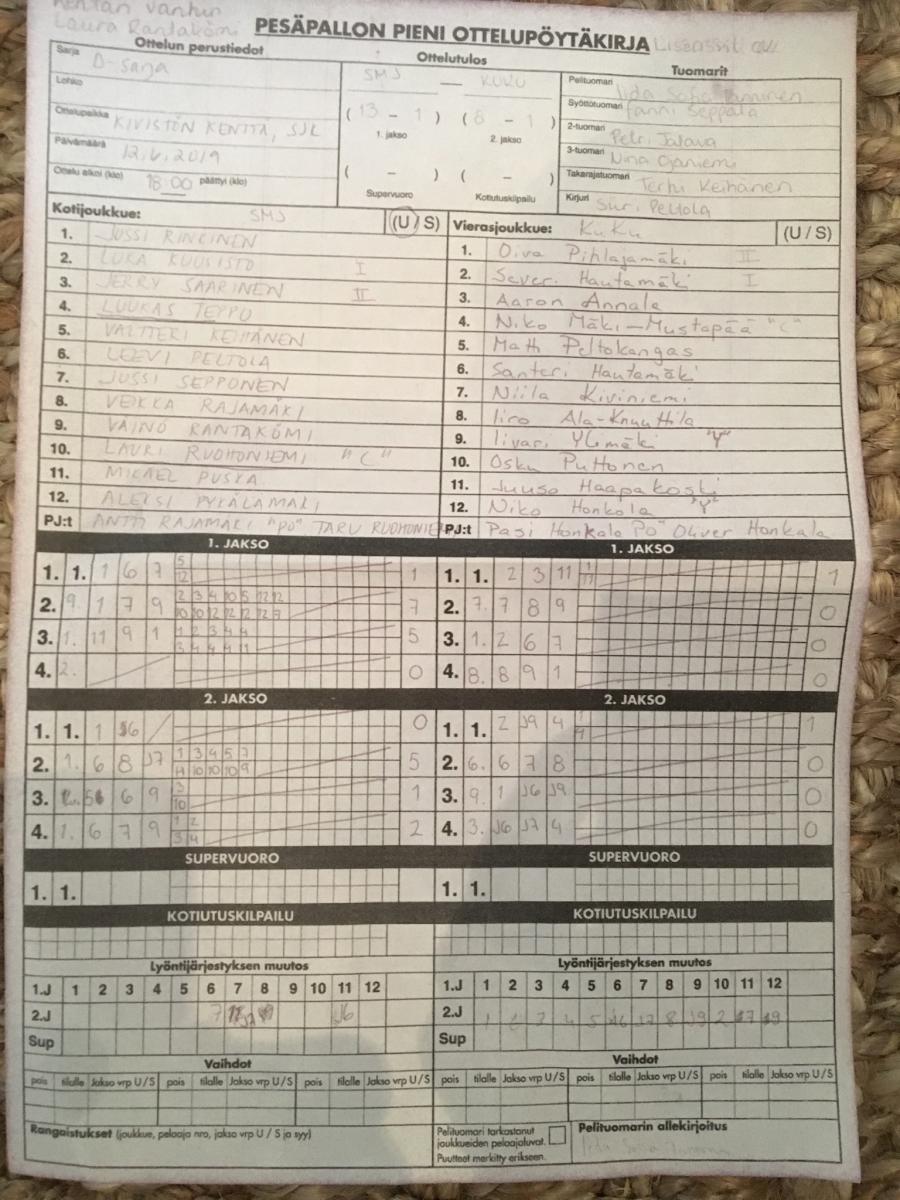 Kentän vanhin
Laura Rantakömi
PESÄPALLON PIENI OTTELUPÖYTÄKIRJA Lisenssit
Ottelun perustiedot
Ottelutulos
Tuomarit
Sarja D-sarja
Lohko
Ottelupaikka KIVISTÖN KENTTÄ, SJK
Päivämäärä 12.6.2019
Ottelu alkoi (klo) 18:00 päättyi (klo)
SMJ — KUKU
( 13 - 1 ) ( 8 - 1 )
1. jakso 2. jakso
( - ) ( - )
Supervuoro Kotiutuskilpailu
Pelituomari Iida Sofia
Syöttötuomari Fanni Seppälä
2-tuomari Petri Jalava
3-tuomari Nina Ojaniemi
Takarajatuomari Terhi Keihänen
Kirjuri Suvi Peltola
Kotijoukkue: SMJ (U / S)
1. JUSSI RINKINEN
2. LUKA KUUSISTO I
3. JERRY SAARINEN II
4. LUUKAS TEPPO
5. VALTTERI KEIHÄNEN
6. LEEVI PELTOLA
7. JUSSI SEPPONEN
8. VEIKKA RAJAMÄKI
9. VÄINÖ RANTAKÖMI
10. LAURI RUOHONIEMI "C"
11. MICAEL PUSKA
12. ALEKSI PYKÄLÄMÄKI
PJ:t ANTTI RAJAMÄKI "PJ" TARU RUOHONIEMI
Vierasjoukkue: KuKu (U / S)
1. Oiva Pihlajamäki II
2. Severi Hautamäki I
3. Aaron Annala
4. Niko Mäki-Mustapää "C"
5. Matti Peltokangas
6. Santeri Hautamäki
7. Niila Kiviniemi
8. Iiro Ala-Knuuttila
9. Iivari Ylimäki "Y"
10. Osku Puttonen
11. Juuso Haapakoski
12. Niko Honkola "Y"
PJ:t Pasi Honkala PJ" Oliver Honkala
1. JAKSO
1. 1. 1 6 7 5 1
12
2. 9. 1 7 9 2 3 4 10 5 12 12 7
10 10 12 12 12 12 7
3. 1. 11 9 1 1 2 3 4 4 5
3 4 4 4 11
4. 2. 0
1. JAKSO
1. 1. 2 3 11 1 1
11
2. 7. 7 8 9 0
3. 1. 2 6 7 0
4. 8. 8 9 1 0
2. JAKSO
1. 1. 1 J6 0
2. 1. 6 8 J7 1 3 4 5 7 5
11 10 10 10 9
3. 6 9 3 1
10
4. 1. 6 7 9 1 2 2
3 4
2. JAKSO
1. 1. 2 J9 4 1 1
4
2. 6. 6 7 8 0
3. 9. 1 J6 J9 0
4. 3. J6 J7 4 0
SUPERVUORO
1. 1.
SUPERVUORO
1. 1.
KOTIUTUSKILPAILU
KOTIUTUSKILPAILU
Lyöntijärjestyksen muutos
1.J 1 2 3 4 5 6 7 8 9 10 11 12
2.J 7 J6
Sup
Lyöntijärjestyksen muutos
1.J 1 2 3 4 5 6 7 8 9 10 11 12
2.J 1 3 4 5 J6 J7 8 J9 2
Sup
Vaihdot
pois tilalle Jakso vrp U / S pois tilalle Jakso vrp U / S pois tilalle Jakso vrp U / S
Vaihdot
pois tilalle Jakso vrp U / S pois tilalle Jakso vrp U / S pois tilalle Jakso vrp U / S
Rangaistukset (joukkue, pelaaja nro, jakso vrp U / S ja syy)
Pelituomari tarkastanut
joukkueiden pelaajaluvat.
Puutteet merkitty erikseen.
Pelituomarin allekirjoitus